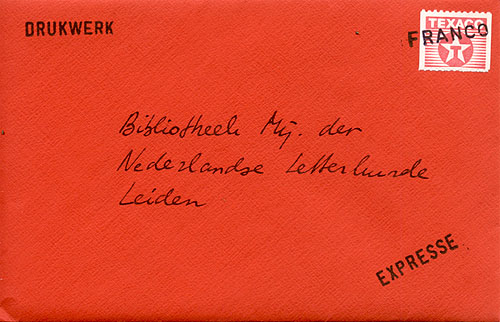 DRUKWERK
TEXACO
FRANCO
T
Bibliotheek Mij. der
Nederlandse Letterkunde
Leiden
EXPRESSE